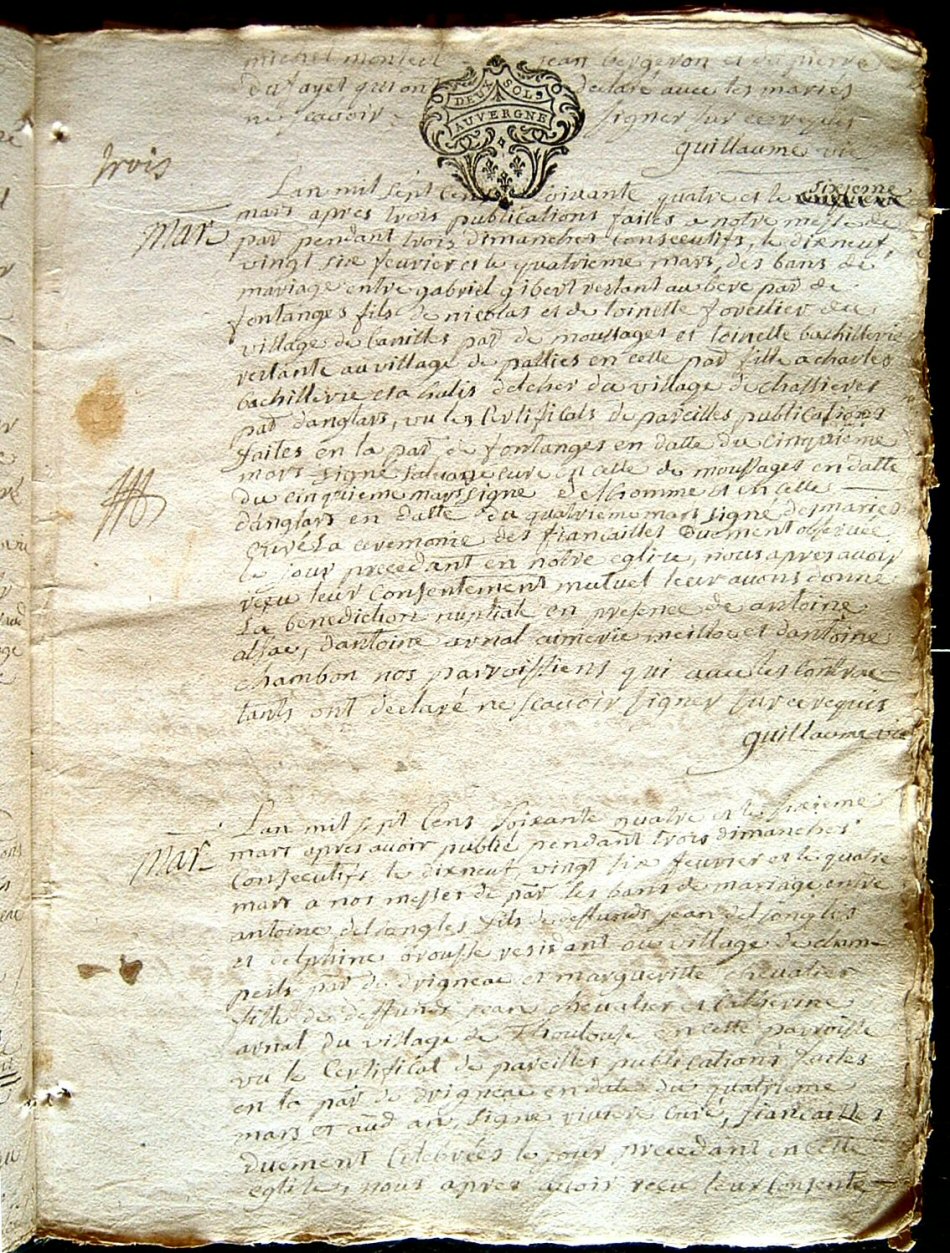 michel monteil jean bergeron et de pierre
Dufayet qui ont declaré avec les mariés
ne scavoir signer sur ce requis
DEUX SOLS
AUVERGNE
guillaume vic
trois
Lan mil sept Cens soixante quatre et le sixieme
Mar. mars apres trois publications faites a notre messe de
par. pendant trois dimanches Consecutifs, le dixneuf,
vingt six fevrier et le quatrieme mars, des bans de
mariage entre gabriel gibert restant au par. de
fontanges fils de nicolas et de toinette forestier du
village de par. de moussages et toinette bachillerie
restante au village de en cette par. fille a charles
bachillerie et a delcher du village de chassieres
par. danglars, vu les Certificats de pareilles publications
faites en la par. de fontanges en datte du cinquieme
mars signé curé en celle de moussages en datte
du cinquieme mars signé et en celle
danglars en datte du quatrieme mars signé desmaries
curé La ceremonie des fiancailles Duement observée
le jour precedant en notre eglise, nous apres avoir
reçu leur Consentement mutuel leur avons donné
La benediction nuptiale en presence de antoine
dantoine arnal et dantoine
Chambon nos parroissiens qui avec les contrac
tants ont declaré ne scavoir signer sur ce requis
guillaume vic
Lan mil sept Cens soixante quatre et le sixieme
Mar. mars apres avoir publié pendant trois dimanches
Consecutifs le dixneuf, vingt six fevrier et le quatre
mars a nos messes de par. les bans de mariage entre
antoine delsongles fils de deffunds jean delsongles
et delphine brousse residant au village de
par. de drigneac et margueritte chevalier
fille de deffunds jean chevalier et Catherine
arnal du village de en cette parroisse
vu le Certificat de pareilles publications faites
en la par. de drigneac en date du quatrieme
mars et aud an, signé riviere curé, fiancailles
Duement Celebrées le jour precedant en cette
eglise, nous apres avoir reçu leur Consente